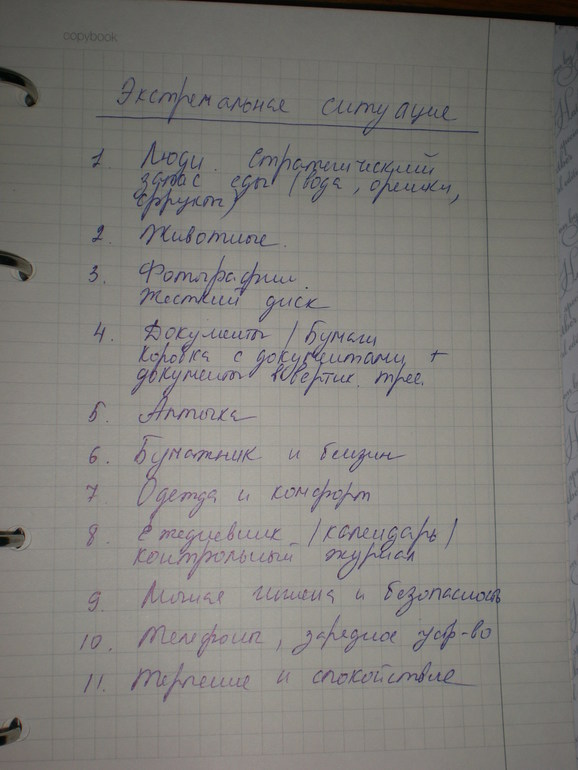 copybook
Экстремальная ситуация
1. Люди. Стратегический
запас еды (вода, орешки,
фрукты)
2. Животные.
3. Фотографии.
Жесткий диск
4. Документы / Бумаги
Коробка с документами +
документы в вертик.
5. Аптечка
6. Бумажник и бензин
7 Одежда и комфорт
8. Ежедневник / календарь /
контрольный журнал
9. Личная гигиена и безопасность
10. Телефоны, зарядное устр-во
11. Терпение и спокойствие